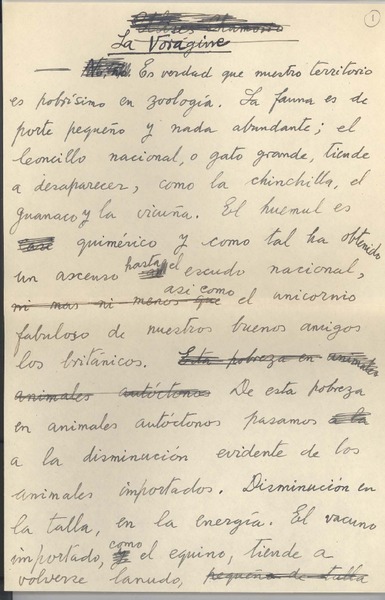 1
La Vorágine
— Es verdad que nuestro territorio
es pobrísimo en zoología. La fauna es de
porte pequeño y nada abundante; el
leoncillo nacional, o gato grande, tiende
a desaparecer, como la chinchilla, el
guanaco y la vicuña. El huemul es
casi quimérico y como tal ha obtenido
un ascenso hasta el escudo nacional,
así como
ni mas ni menos que el unicornio
fabuloso de nuestros buenos amigos
los británicos. Esta pobreza en animales
animales autóctonos De esta pobreza
en animales autóctonos pasamos a la
a la disminución evidente de los
animales importados. Disminución en
la talla, en la energía. El vacuno
importado, como el equino, tiende a
volverse lanudo, pequeño de talla